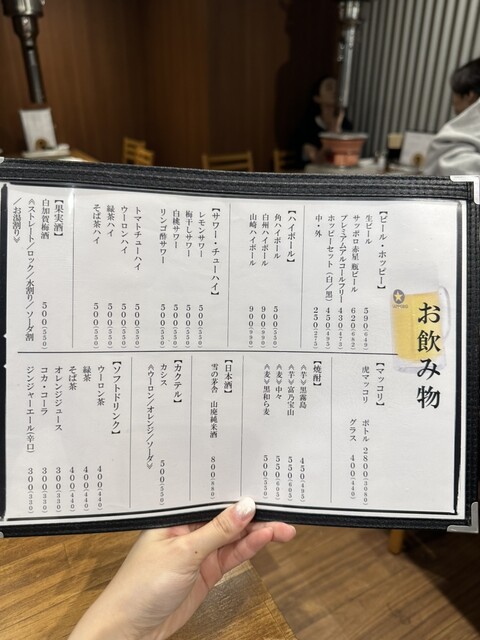 お飲み物
【ビール・ホッピー】
生ビール 590(649)
サッポロ赤星 瓶ビール 620(682)
プレミアムアルコールフリー 430(473)
ホッピーセット(白/黒) 450(495)
中・外 250(275)
【ハイボール】
角ハイボール 500(550)
白州ハイボール 900(990)
山崎ハイボール 900(990)
【サワー・チューハイ】
レモンサワー 500(550)
梅干しサワー 500(550)
白桃サワー 500(550)
リンゴ酢サワー 500(550)
トマトチューハイ 500(550)
ウーロンハイ 500(550)
緑茶ハイ 500(550)
そば茶ハイ 500(550)
【果実酒】
白加賀梅酒 500(550)
《ストレート/ロック/水割り/ソーダ割
/お湯割り》
【マッコリ】
虎マッコリ ボトル 2800(3080)
グラス 400(440)
【焼酎】
《芋》黒霧島 450(495)
《芋》富乃宝山 550(605)
《麦》中々 550(605)
《麦》黒和ら麦 500(550)
【日本酒】
雪の茅舎 山廃純米酒 800(880)
【カクテル】
カシス 500(550)
《ウーロン/オレンジ/ソーダ》
【ソフトドリンク】
ウーロン茶 400(440)
緑茶 400(440)
そば茶 400(440)
オレンジジュース 300(330)
コカ・コーラ 300(330)
ジンジャーエール(辛口) 300(330)